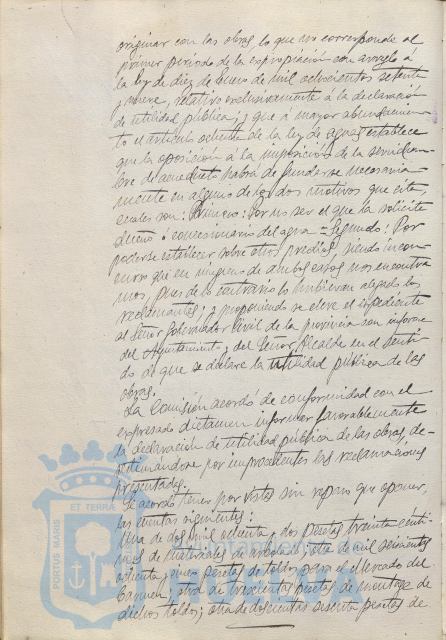 originar con las obras, lo que no corresponde al
primer periodo de la expropiación con arreglo á
la ley de diez de Enero de mil ochocientos setenta
y nueve, relativo exclusivamente á la declaración
de utilidad pública; y que á mayor abundamien-
to el artículo ochenta de la ley de aguas establece
que la oposición á la imposición de la servidum-
bre de acueducto habrá de fundarse necesaria-
mente en alguno de los dos motivos que cita,
cuales son: Primero: Por no ser el que la solicite
dueño ó concesionario del agua = Segundo: Por
poderse establecer sobre otros predios, siendo incon-
cuso que en ninguno de ambos casos nos encontra
mos, pues de lo contrario lo hubieran alegado los
reclamantes, y proponiendo se eleve el expediente
al Señor Gobernador Civil de la provincia con informe
del Ayuntamiento y del Señor Alcalde en el senti-
do de que se declare la utilidad pública de las
obras.
La Comisión acordó de conformidad con el
expresado dictamen informar favorablemente
la declaración de utilidad pública de las obras, de-
sestimandose por improcedentes las reclamaciones
presentadas.
Se acordó tener por vistas sin reparo que oponer,
las cuentas siguientes:
Una de dos mil ochenta y dos pesetas treinta cénti-
mos de materiales; otra de mil seiscientas
ochenta y cinco pesetas de toldos para el Mercado del
Carmen; otra de trescientas pesetas de montaje de
dichos toldos; otra de doscientas sesenta pesetas de
PORTUS MARIS ET TERRAE
HUELVA